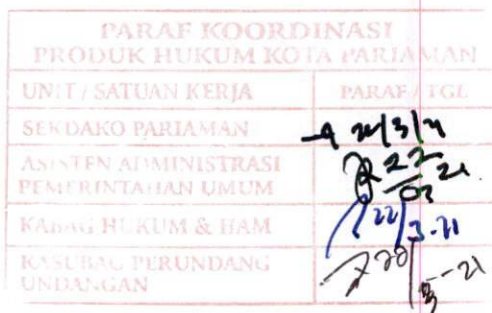 PARAF KOORDINASI
PRODUK HUKUM KOTA PARIAMAN
UNIT / SATUAN KERJA PARAF / TGL
SEKDAKO PARIAMAN
ASISTEN ADMINISTRASI 22
PEMERINTAHAN UMUM 03 21
KABAG HUKUM & HAM 22/3-21
KASUBAG PERUNDANG
UNDANGAN